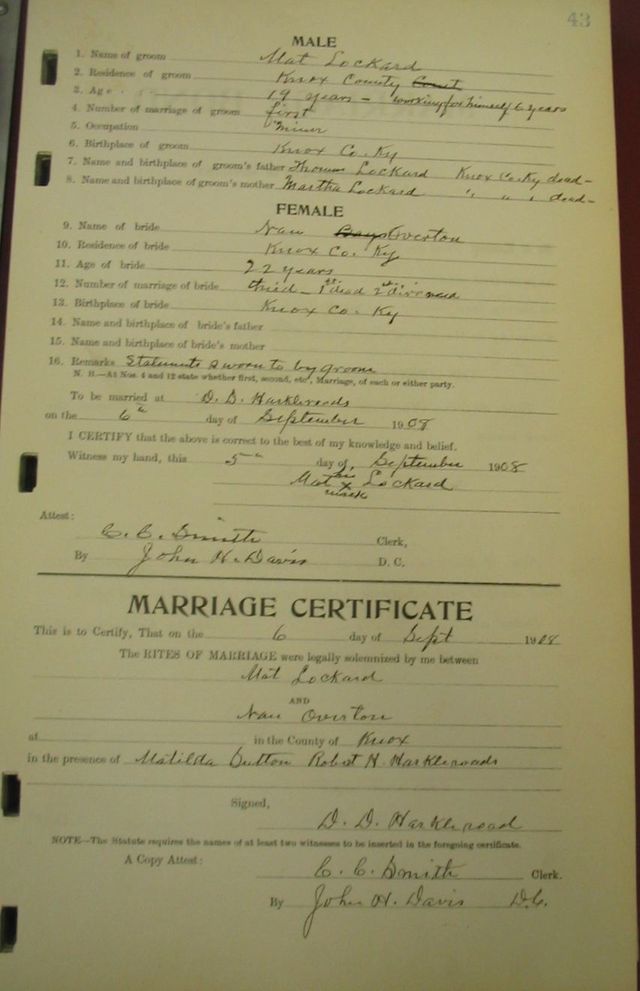 43
MALE
1. Name of groom Mat Lockard
2. Residence of groom Knox County Court
3. Age 19 years - working for himself 6 years
4. Number of marriage of groom first
5. Occupation Miner
6. Birthplace of groom Knox Co. Ky
7. Name and birthplace of groom's father Thomas Lockard Knox Co. Ky dead-
8. Name and birthplace of groom's mother Martha Lockard " " " dead-
FEMALE
9. Name of bride Nan Overton
10. Residence of bride Knox Co. Ky
11. Age of bride 22 years
12. Number of marriage of bride third - 1st dead 2nd divorced
13. Birthplace of bride Knox Co. Ky
14. Name and birthplace of bride's father
15. Name and birthplace of bride's mother
16. Remarks Statements sworn to by groom
N. B.—At Nos. 4 and 12 state whether first, second, etc., Marriage, of each or either party.
To be married at D. D. Harkleroads
on the 6" day of September 1908
I CERTIFY that the above is correct to the best of my knowledge and belief.
Witness my hand, this 5" day of, September 1908
his
Mat x Lockard
mark
Attest:
C. C. Smith Clerk,
By John H. Davis D. C.
MARRIAGE CERTIFICATE
This is to Certify, That on the 6 day of Sept 1908
The RITES OF MARRIAGE were legally solemnized by me between
Mat Lockard
AND
Nan Overton
at in the County of Knox
in the presence of Matilda Sutton Robert H. Harkleroads
Signed,
D. D. Harkleroad
NOTE—The Statute requires the names of at least two witnesses to be inserted in the foregoing certificate.
A Copy Attest: C. C. Smith Clerk.
By John H. Davis D.C.